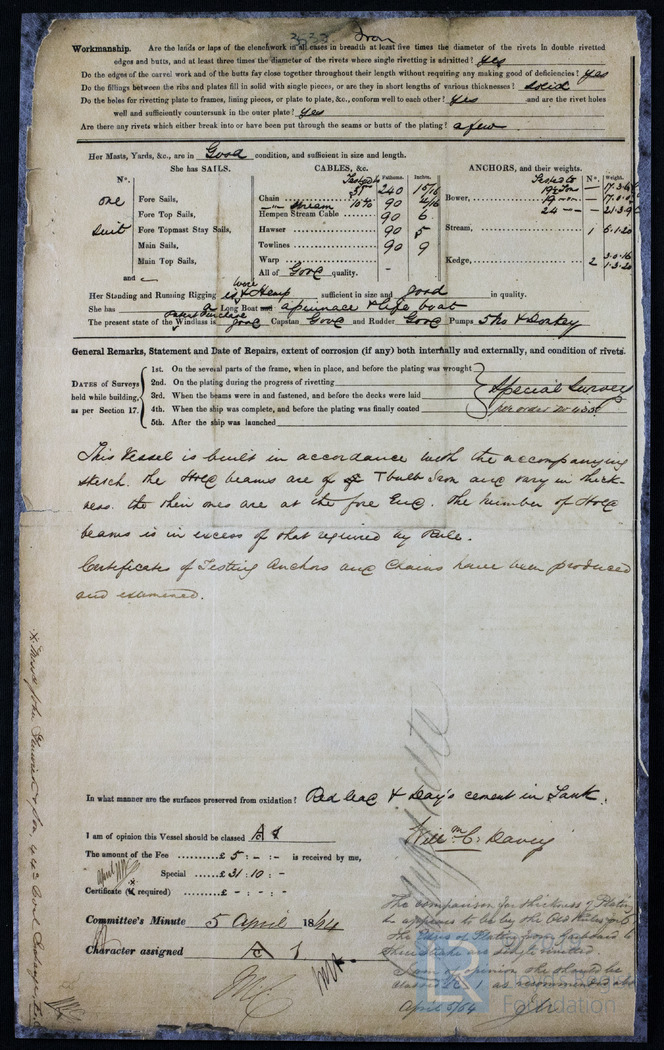 333 Iron
Workmanship. Are the lands or laps of the clenchwork in all cases in breadth at least five times the diameter of the rivets in double rivetted
edges and butts, and at least three times the diameter of the rivets where single rivetting is admitted? Yes
Do the edges of the carvel work and of the butts fay close together throughout their length without requiring any making good of deficiencies? Yes
Do the fillings between the ribs and plates fill in solid with single pieces, or are they in short lengths of various thicknesses? Solid
Do the holes for rivetting plate to frames, lining pieces, or plate to plate, &c., conform well to each other? Yes and are the rivet holes
well and sufficiently countersunk in the outer plate? Yes
Are there any rivets which either break into or have been put through the seams or butts of the plating? a few
Her Masts, Yards, &c., are in Good condition, and sufficient in size and length.
She has SAILS. CABLES, &c. ANCHORS, and their weights.
N°. Fathoms. Inches. N°. Weight.
one Fore Sails, Chain 55 240 15/16 Bower,
Fore Top Sails, Stream 90
suit Fore Topmast Stay Sails, Hempen Stream Cable 90 6 Stream, 1 5.1.20
Main Sails, Hawser 90 5
Main Top Sails, Towlines 90 9 Kedge, 2
Warp 1.3.20
and All of Good quality.
Her Standing and Running Rigging is Wire & Hemp sufficient in size and good in quality.
She has a Long Boat and a pinnace & life boat
The present state of the Windlass is Patent Purchase good Capstan Good and Rudder Good Pumps 5 No & Donkey
General Remarks, Statement and Date of Repairs, extent of corrosion (if any) both internally and externally, and condition of rivets.
DATES of Surveys held while building, as per Section 17.
1st. On the several parts of the frame, when in place, and before the plating was wrought
2nd. On the plating during the progress of rivetting
3rd. When the beams were in and fastened, and before the decks were laid
4th. When the ship was complete, and before the plating was finally coated
5th. After the ship was launched
Special Survey
per order No
This Vessel is built in accordance with the accompanying
sketch. the Hold beams are of T bulb Iron and vary in thick-
ness. the thin ones are at the fore End. the number of Hold
beams is in excess of that required by Rule.
Certificates of Testing Anchors and Chains have been produced
and examined.
In what manner are the surfaces preserved from oxidation? Red lead & Day's cement in Tank.
I am of opinion this Vessel should be classed A 1
Willm C. Davey
The amount of the Fee £ 5 : - : - is received by me,
Special £ 31 : 10 : -
Certificate (if required) £ - : - : -
Committee's Minute 5 April 1864
Character assigned A 1
The comparison for thickness of Plating
appears to be by the Old Rules
The Edges of Plating from Garboard to
Sheerstrake are
I am of opinion she should be
classed A 1 as recommended
April 5/64
Foundation